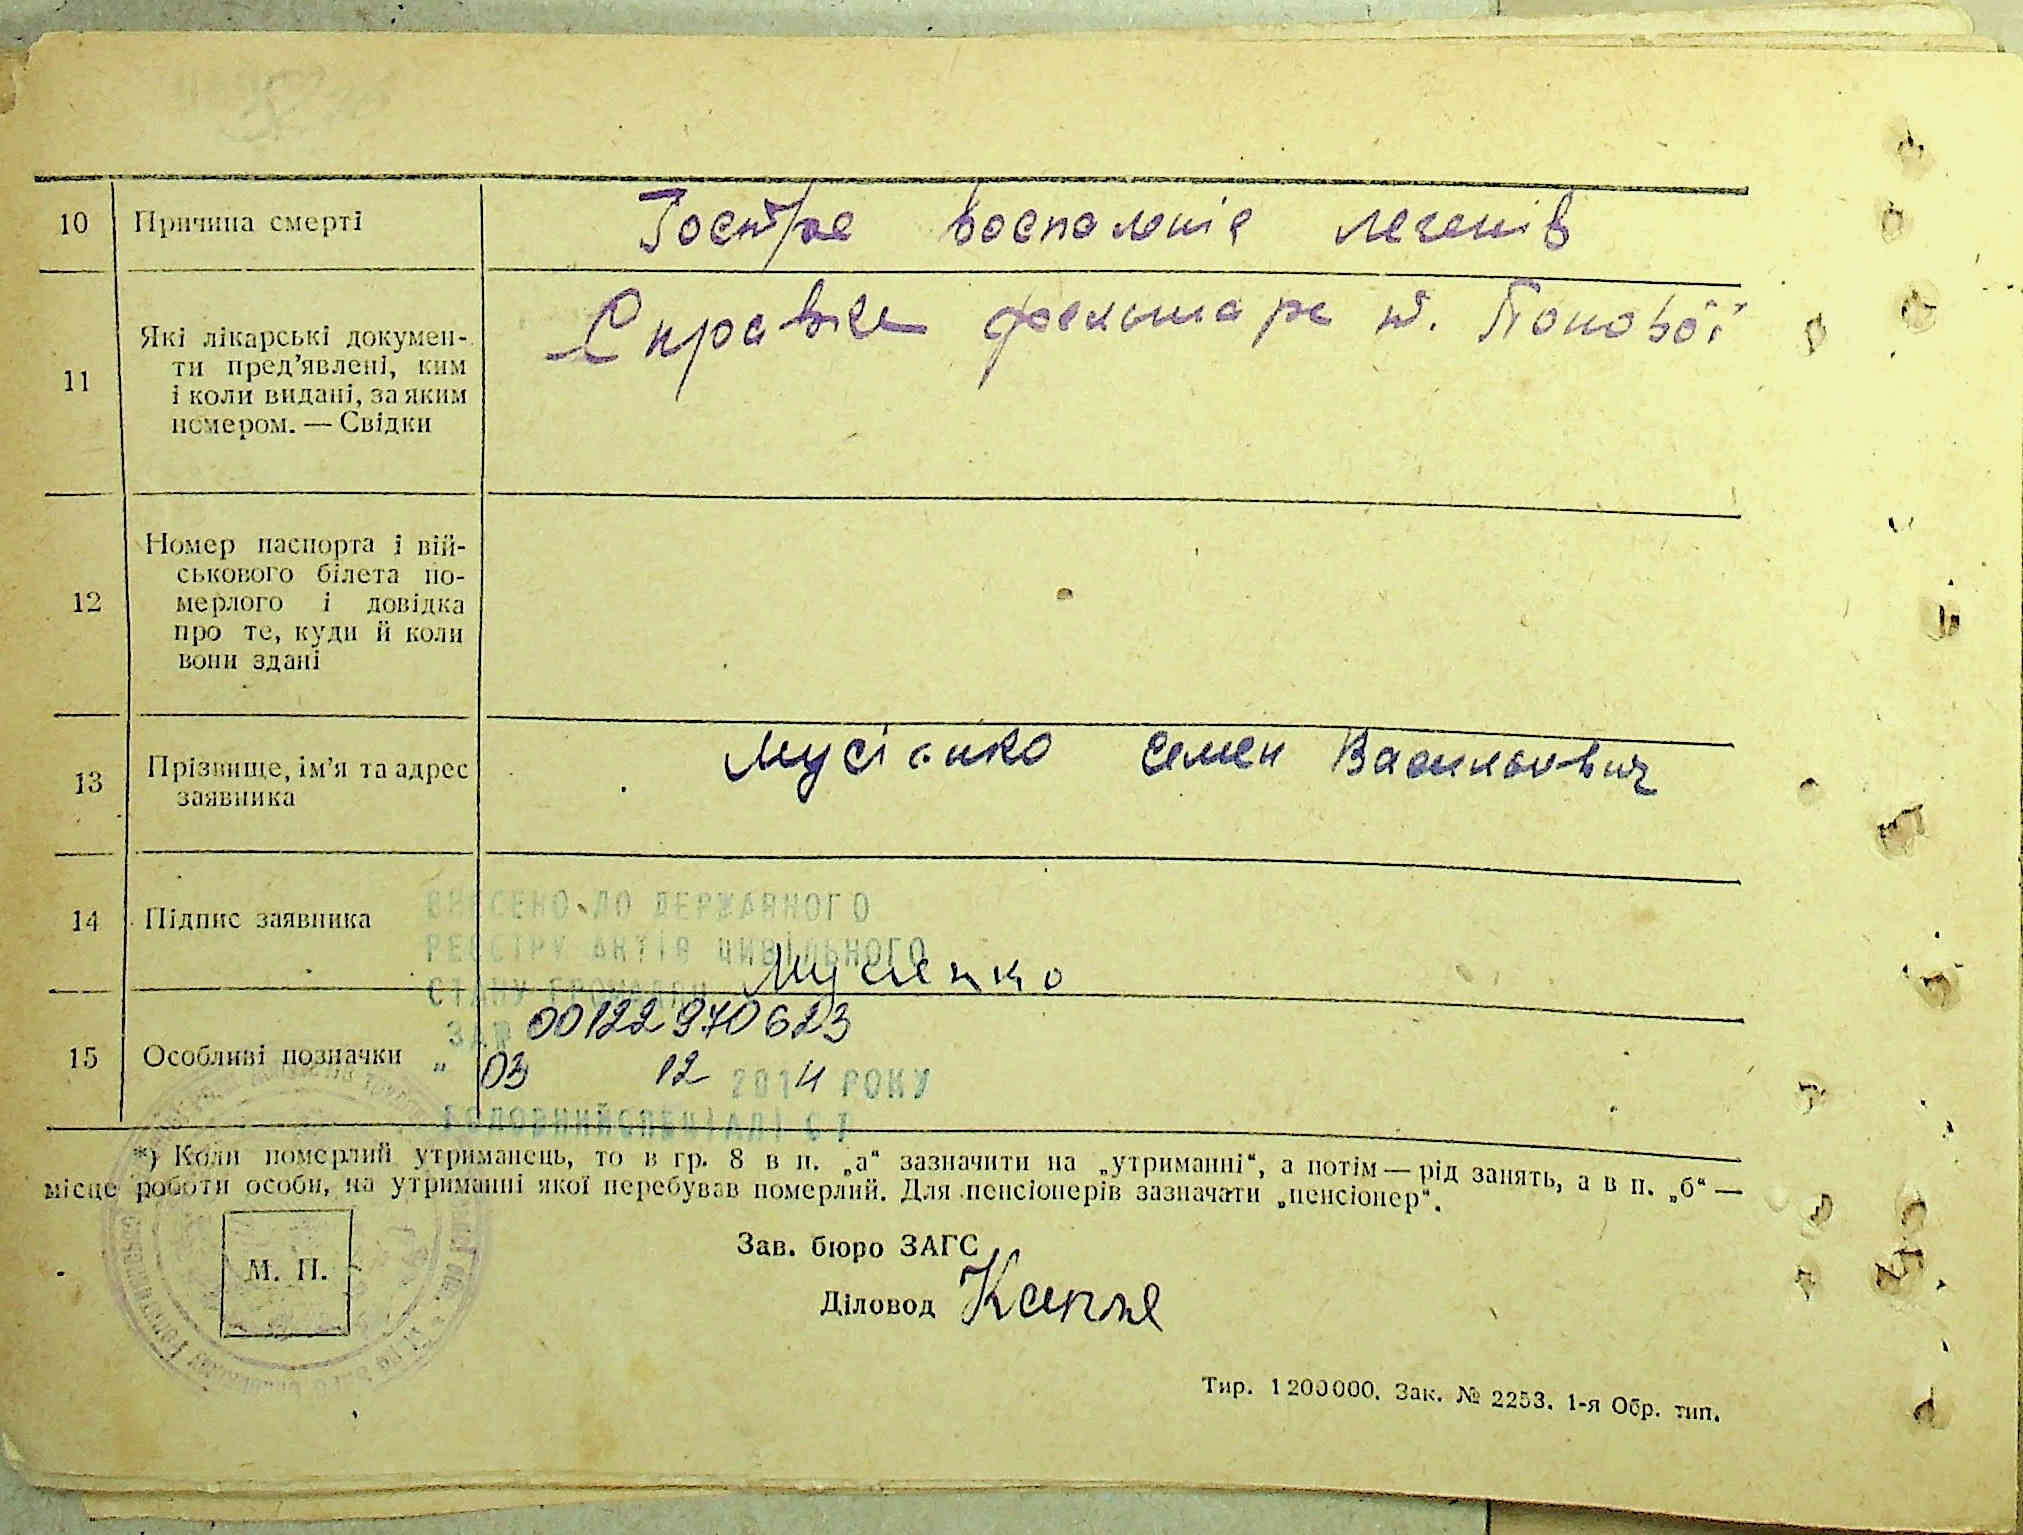 10 Причина смерті Гостре воспаление легенів
11 Які лікарські докумен-
ти пред’явлені, ким
і коли видані, за яким
номером. — Свідки
Справка фельшара т. Попової
12 Номер паспорта і вій-
ськового білета по-
мерлого і довідка
про те, куди й коли
вони здані
13 Прізвище, ім’я та адрес
заявника
Мусієнко Семен Васильович
ВНЕСЕНО ДО ДЕРЖАВНОГО
14 Підпис заявника
РЕЄСТРУ АКТІВ ЦИВІЛЬНОГО
Мусиенко
СТАНУ ГРОМАДЯН
ЗА № 00122970623
15 Особливі позначки
„ 03 12 2014 РОКУ
ГОЛОВНИЙ СПЕЦІАЛІСТ
*) Коли померлий утриманець, то в гр. 8 в п. „а“ зазначити на „утриманні“, а потім — рід занять, а в п. „б“ —
місце роботи особи, на утриманні якої перебував померлий. Для пенсіонерів зазначати „пенсіонер“.
Зав. бюро ЗАГС
М. П.
Діловод
Тир. 1200000. Зак. № 2253. 1-я Обр. тип.